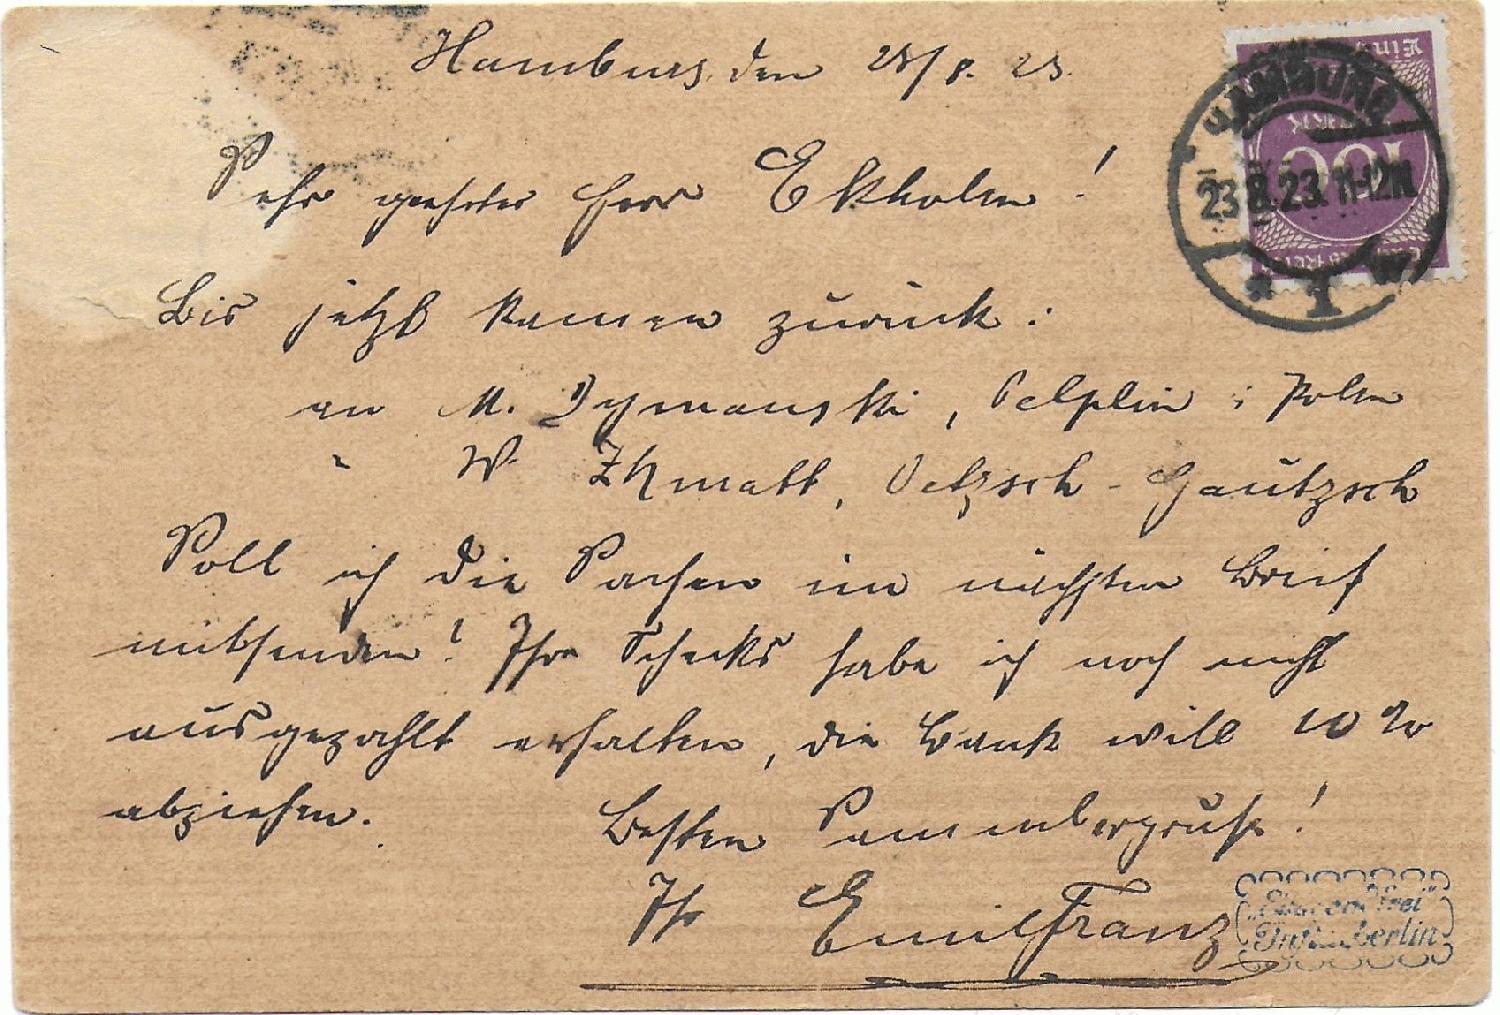 Hamburg, den 23/8. 23.
Sehr geehrter Herr Ekholm!
Bis jetzt kamen zurück:
an M. Dymanski, Pelplin i Polen
" W. , Oetzsch-Gautzsch
Soll ich die Sachen im nächsten Brief
mitsenden? Ihre Schecks habe ich noch nicht
ausgezahlt erhalten, die Bank will 10%
abziehen.
Besten Sammlergruß!
Ihr Emil Franz
HAMBURG
23.8.23. 11-12
* 1
100
berlin